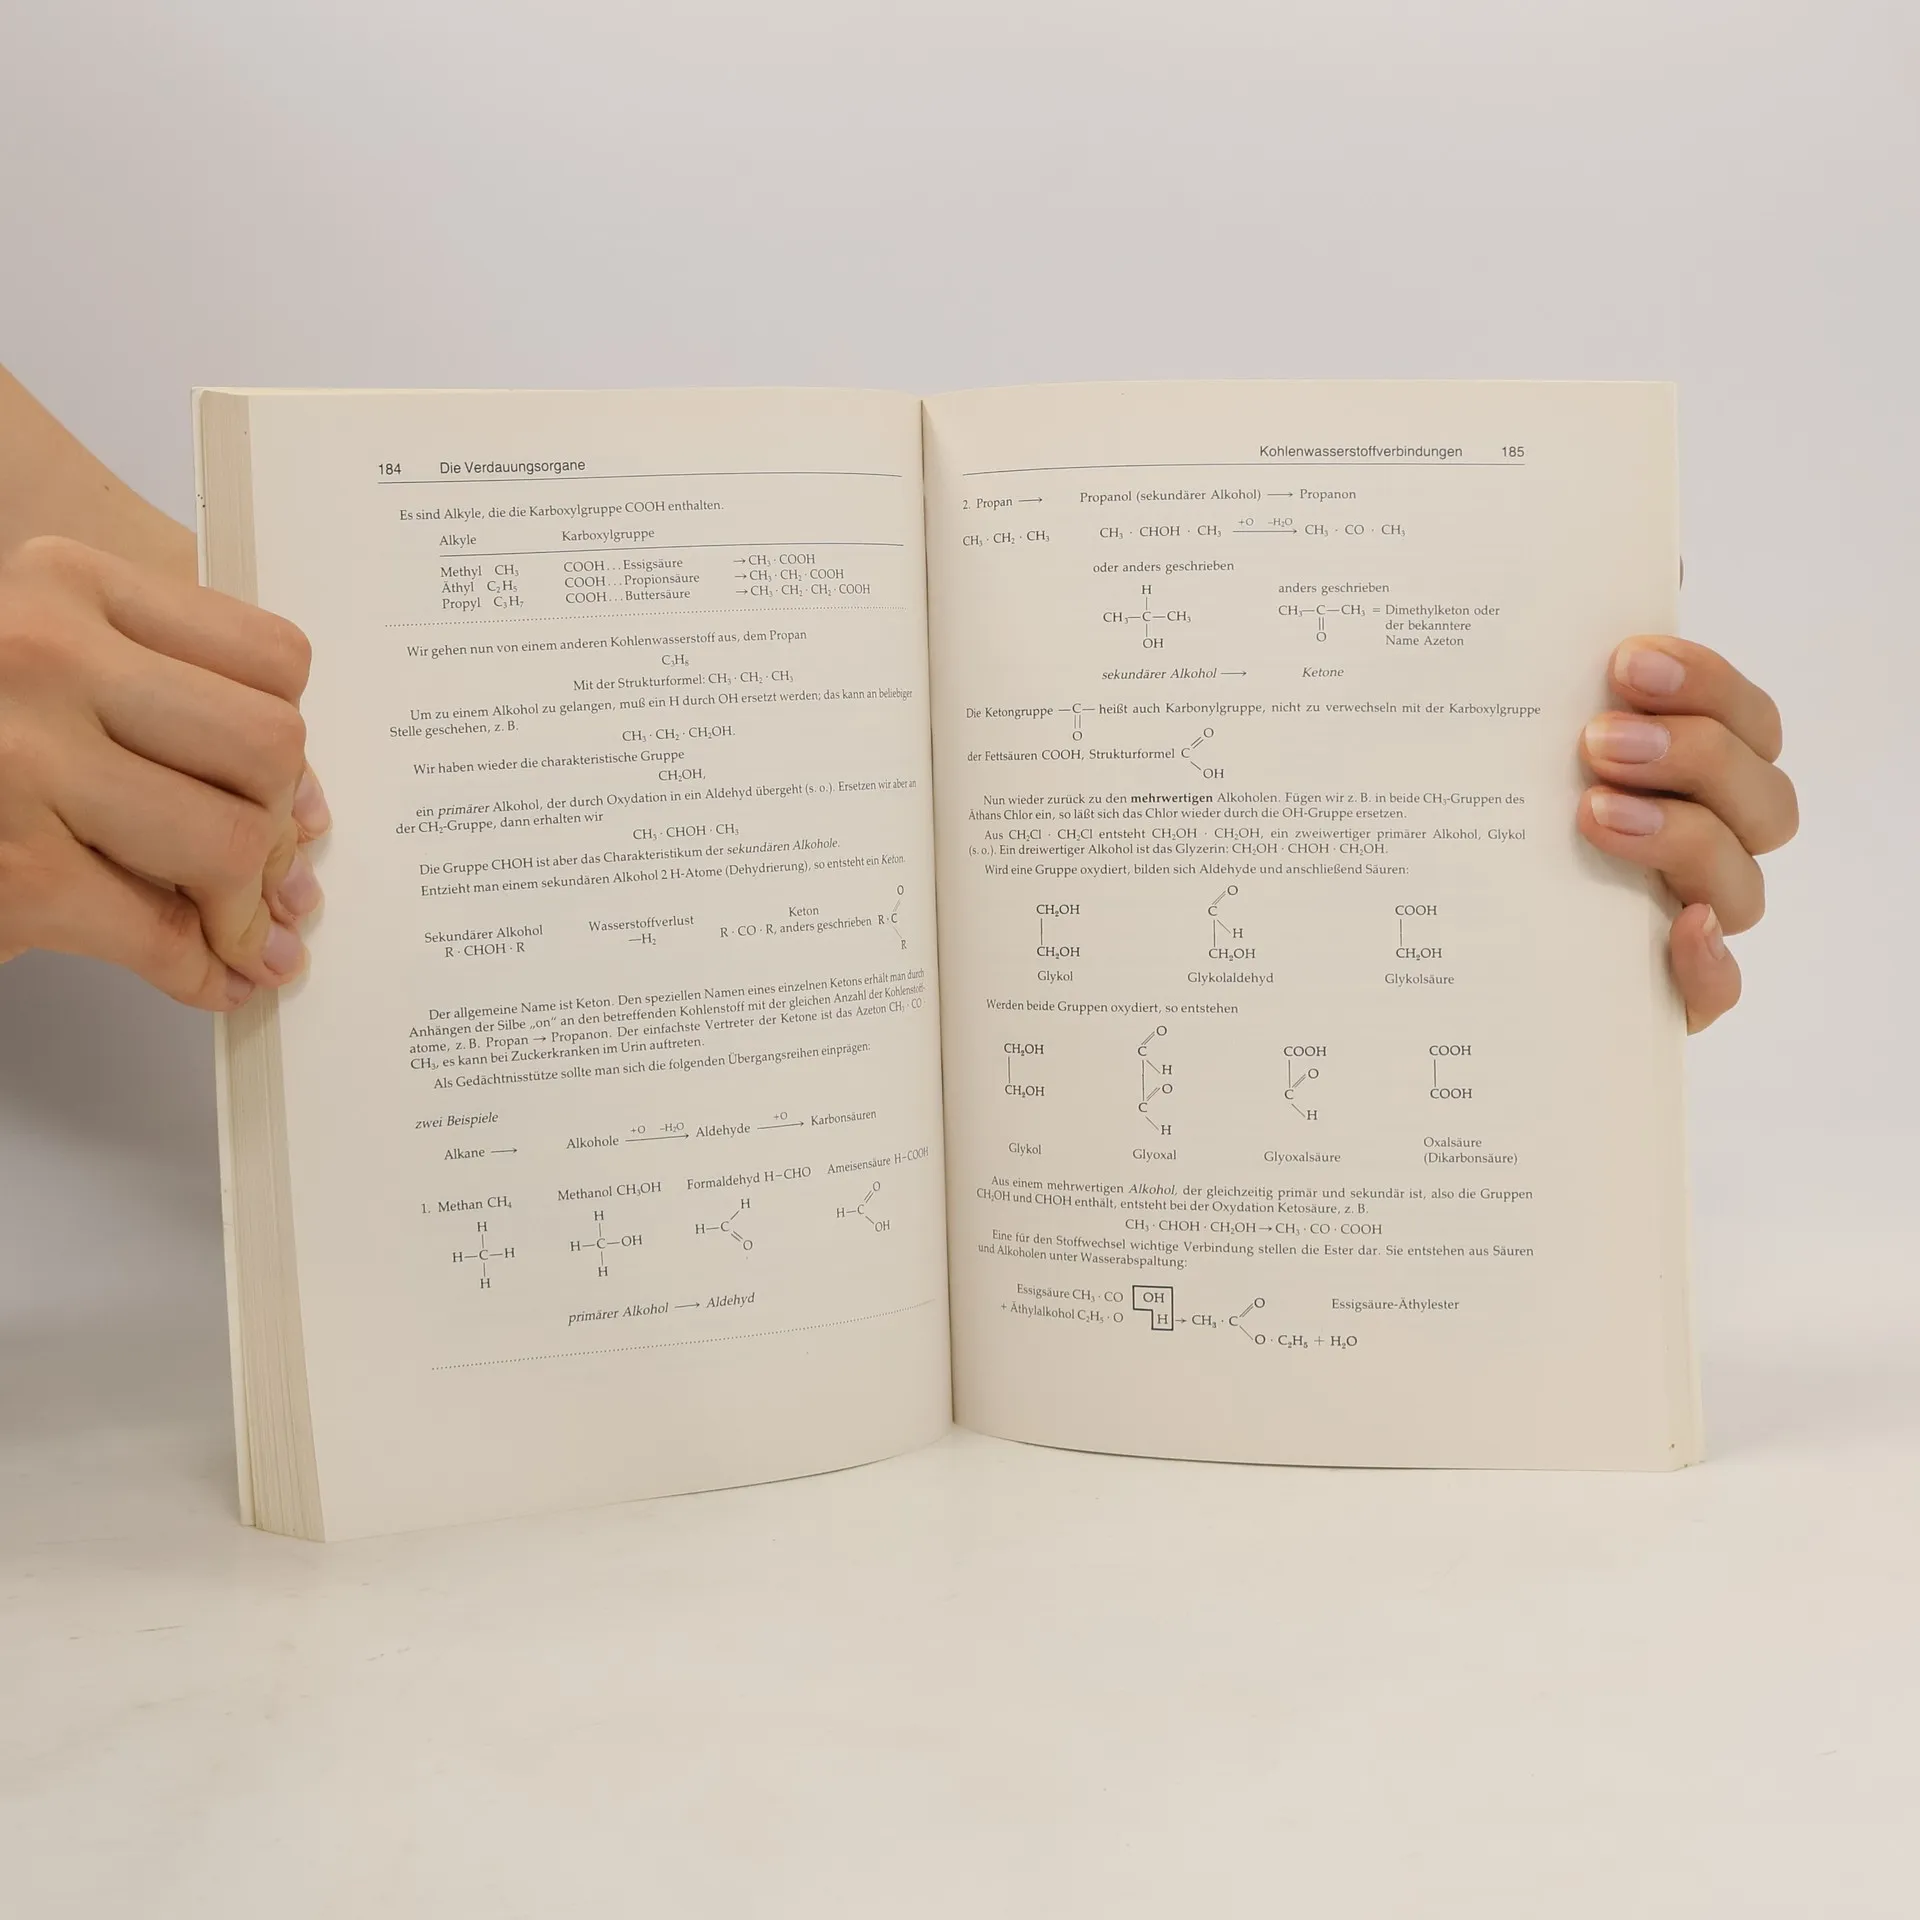 184 Die Verdauungsorgane
Es sind Alkyle, die die Karboxylgruppe COOH enthalten.
Alkyle Karboxylgruppe
Methyl CH₃ COOH...Essigsäure →CH₃·COOH
Äthyl C₂H₅ COOH...Propionsäure →CH₃·CH₂·COOH
Propyl C₃H₇ COOH...Buttersäure →CH₃·CH₂·CH₂·COOH
Wir gehen nun von einem anderen Kohlenwasserstoff aus, dem Propan
C₃H₈
Mit der Strukturformel: CH₃·CH₂·CH₃
Um zu einem Alkohol zu gelangen, muß ein H durch OH ersetzt werden; das kann an beliebiger
Stelle geschehen, z. B.
CH₃·CH₂·CH₂OH.
Wir haben wieder die charakteristische Gruppe
CH₂OH,
ein primärer Alkohol, der durch Oxydation in ein Aldehyd übergeht (s. o.). Ersetzen wir aber an
der CH₂-Gruppe, dann erhalten wir
CH₃·CHOH·CH₃
Die Gruppe CHOH ist aber das Charakteristikum der sekundären Alkohole.
Entzieht man einem sekundären Alkohol 2 H-Atome (Dehydrierung), so entsteht ein Keton.
O
Sekundärer Alkohol Wasserstoffverlust Keton
R·CHOH·R —H₂ R·CO·R, anders geschrieben R·C
R
Der allgemeine Name ist Keton. Den speziellen Namen eines einzelnen Ketons erhält man durch
Anhängen der Silbe „on“ an den betreffenden Kohlenstoff mit der gleichen Anzahl der Kohlenstoff-
atome, z. B. Propan → Propanon. Der einfachste Vertreter der Ketone ist das Azeton CH₃·CO·
CH₃, es kann bei Zuckerkranken im Urin auftreten.
Als Gedächtnisstütze sollte man sich die folgenden Übergangsreihen einprägen:
zwei Beispiele
+O −H₂O +O
Alkane ⟶ Alkohole ⟶ Aldehyde ⟶ Karbonsäuren
1. Methan CH₄ Methanol CH₃OH Formaldehyd H−CHO Ameisensäure H−COOH
H H H O
H—C—H H—C—OH H—C H—C
H H O OH
primärer Alkohol ⟶ Aldehyd
Kohlenwasserstoffverbindungen 185
2. Propan ⟶ Propanol (sekundärer Alkohol) ⟶ Propanon
+O −H₂O
CH₃·CH₂·CH₃ CH₃·CHOH·CH₃ ⟶ CH₃·CO·CH₃
oder anders geschrieben
H anders geschrieben
CH₃—C—CH₃ CH₃—C—CH₃ = Dimethylketon oder
der bekanntere
OH O Name Azeton
sekundärer Alkohol ⟶ Ketone
Die Ketongruppe —C— heißt auch Karbonylgruppe, nicht zu verwechseln mit der Karboxylgruppe
O O
der Fettsäuren COOH, Strukturformel C
OH
Nun wieder zurück zu den mehrwertigen Alkoholen. Fügen wir z. B. in beide CH₃-Gruppen des
Äthans Chlor ein, so läßt sich das Chlor wieder durch die OH-Gruppe ersetzen.
Aus CH₂Cl · CH₂Cl entsteht CH₂OH · CH₂OH, ein zweiwertiger primärer Alkohol, Glykol
(s. o.). Ein dreiwertiger Alkohol ist das Glyzerin: CH₂OH·CHOH·CH₂OH.
Wird eine Gruppe oxydiert, bilden sich Aldehyde und anschließend Säuren:
O
CH₂OH C COOH
H
CH₂OH CH₂OH CH₂OH
Glykol Glykolaldehyd Glykolsäure
Werden beide Gruppen oxydiert, so entstehen
O
CH₂OH C COOH COOH
H O
O
CH₂OH C C COOH
H H
Glykol Glyoxal Glyoxalsäure Oxalsäure
(Dikarbonsäure)
Aus einem mehrwertigen Alkohol, der gleichzeitig primär und sekundär ist, also die Gruppen
CH₂OH und CHOH enthält, entsteht bei der Oxydation Ketosäure, z. B.
CH₃·CHOH·CH₂OH→CH₃·CO·COOH
Eine für den Stoffwechsel wichtige Verbindung stellen die Ester dar. Sie entstehen aus Säuren
und Alkoholen unter Wasserabspaltung:
Essigsäure CH₃·CO OH O Essigsäure-Äthylester
+ Äthylalkohol C₂H₅·O H → CH₃·C
O·C₂H₅ + H₂O